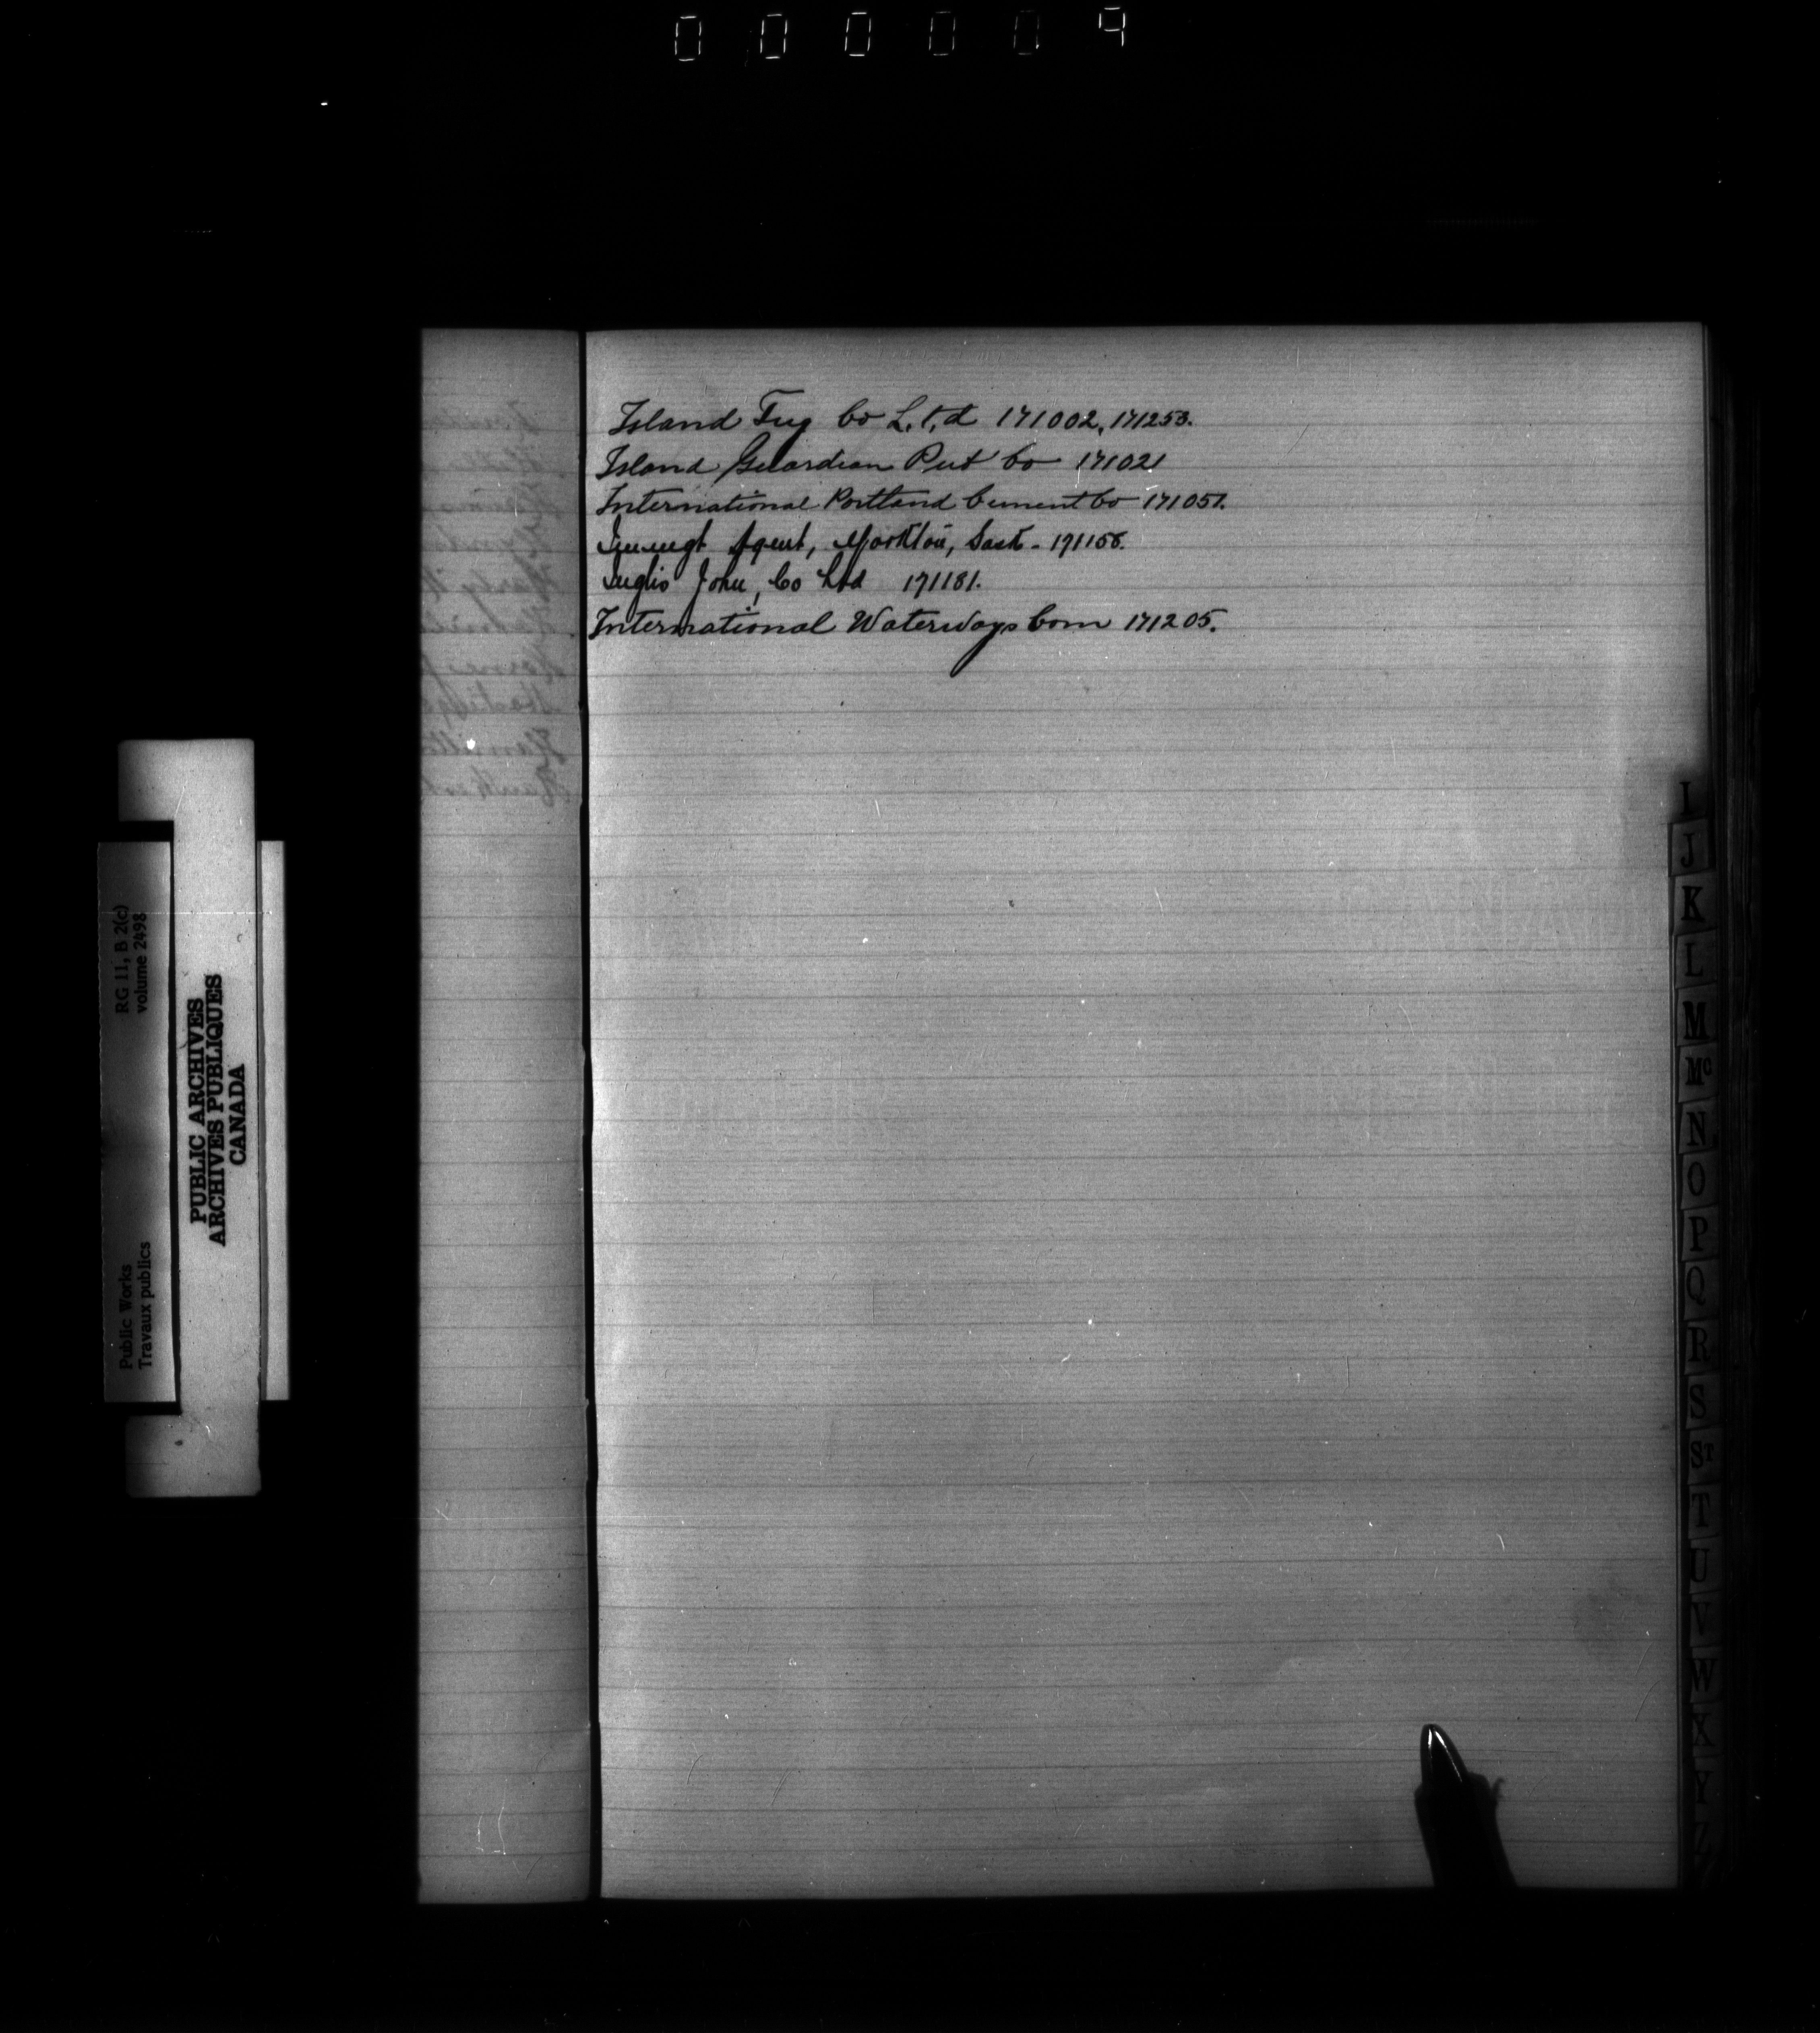 000009
Island Tug Co L.t.d 171002, 171253.
Island Guardian Pub Co 171021
International Portland Cement Co 171051.
Immigt Agent, Yorkton, Sask - 171158.
Inglis John, Co Ltd 171181.
International Waterways Com 171205.
I
J
K
L
M
Mc
N
O
P
Q
R
S
ST
T
U
V
W
X
Y
Z
RG 11, B 2(c)
volume 2498
Public Works
Travaux publics
PUBLIC ARCHIVES
ARCHIVES PUBLIQUES
CANADA